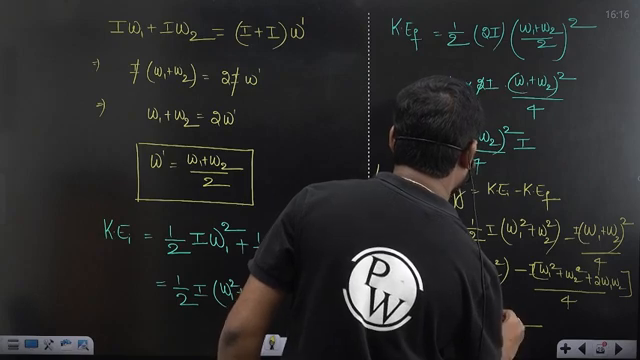 Iω₁ + Iω₂ = (I + I) ω'
⇒ I (ω₁+ω₂) = 2I ω'
⇒ ω₁+ω₂ = 2ω'
ω' = (ω₁+ω₂)/2
K.Eᵢ = 1/2 Iω₁² + 1
= 1/2 I (ω₁²
16:16
K.E_f = 1/2 (2I) ((ω₁+ω₂)/2)²
× 2I · (ω₁+ω₂)²/4
ω₂)² I
4
y = K.Eᵢ - K.E_f
I (ω₁² + ω₂²) - I(ω₁+ω₂)²/4
) - I[ω₁² + ω₂² + 2ω₁ω₂]/4
P
W